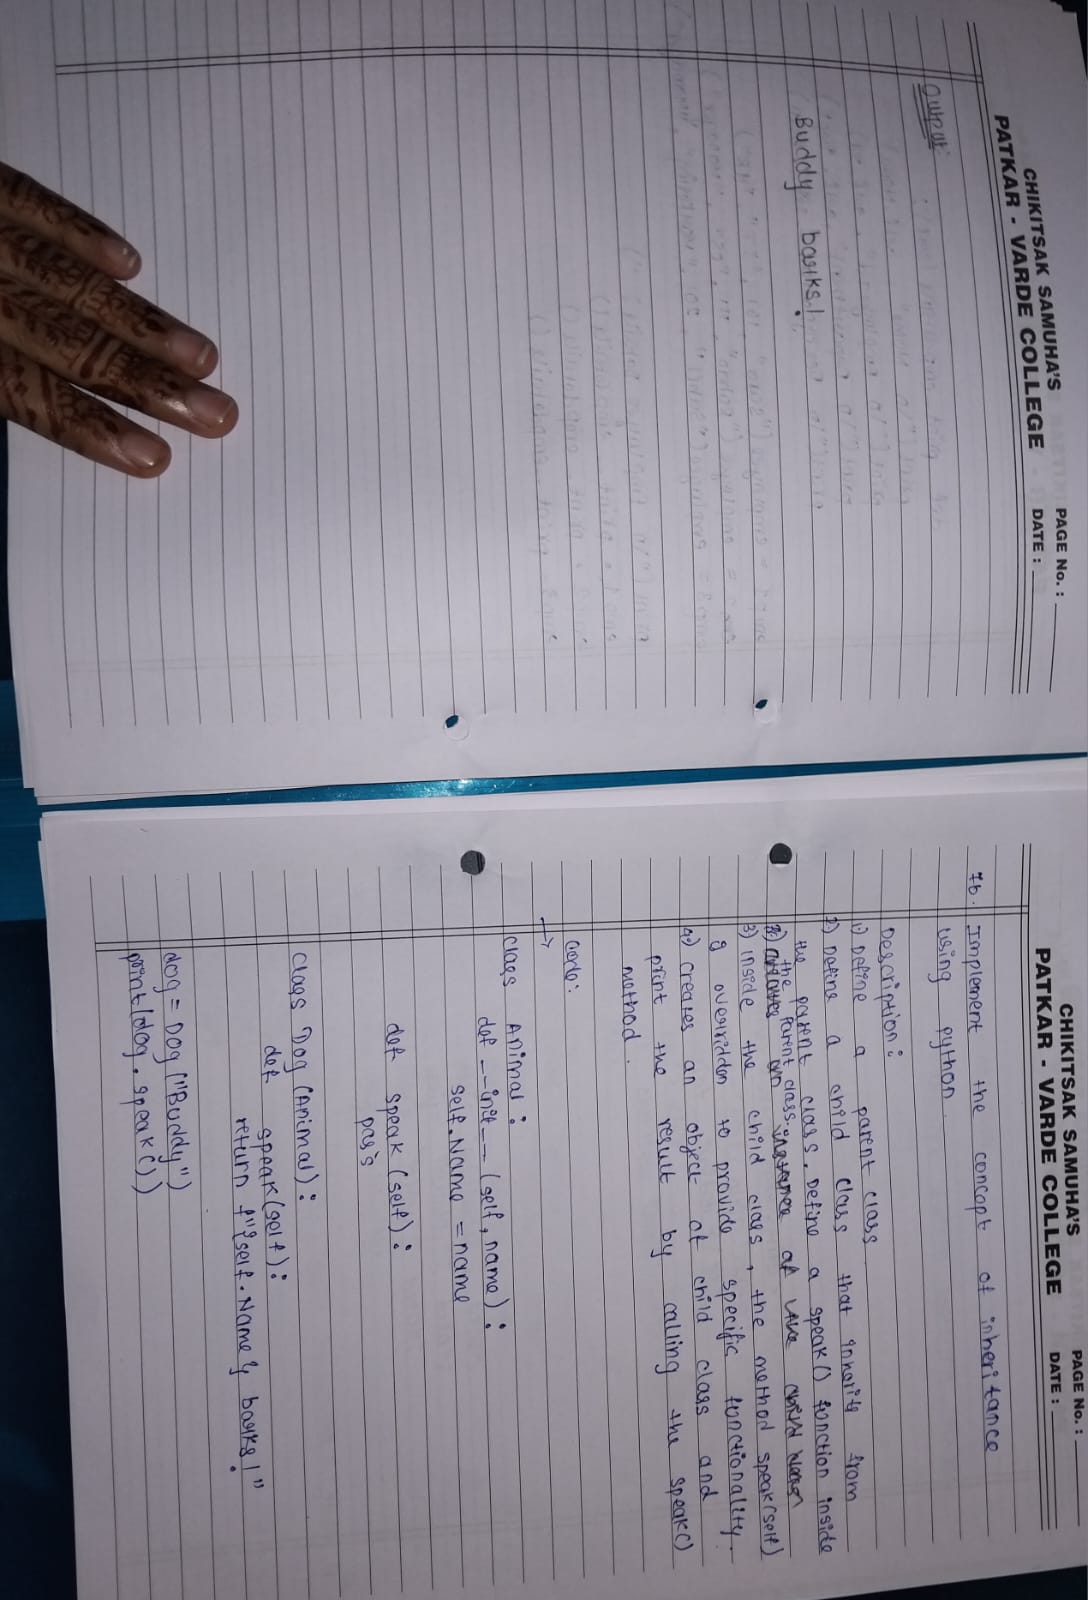 CHIKITSAK SAMUHA'S
PATKAR - VARDE COLLEGE
PAGE No. :
DATE :
Output:
Buddy barks!
CHIKITSAK SAMUHA'S
PATKAR - VARDE COLLEGE
PAGE No. :
DATE :
7b. Implement the concept of inheritance
using python.
Description:
1) Define a parent class
2) Define a child class that inherits from
the parent class. Define a speak() function inside
the parent class.
3) inside the child class, the method speak(self)
is overridden to provide specific functionality.
4) creates an object of child class and
print the result by calling the speak()
method.
Code:
→
class Animal:
def __init__(self, name):
self.Name = name
def speak (self):
pass
class Dog (Animal):
def speak(self):
return f"{self.Name} barks!"
dog = Dog ("Buddy")
print(dog.speak())